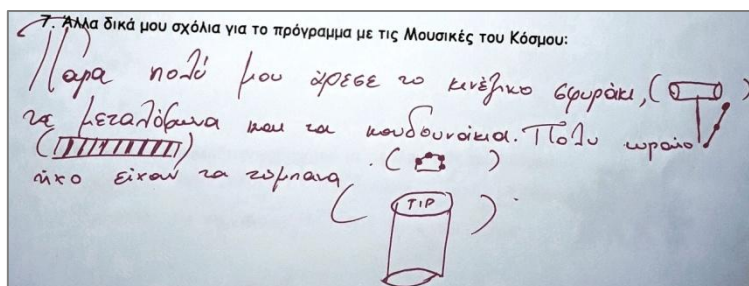 7. Άλλα δικά μου σχόλια για το πρόγραμμα με τις Μουσικές του Κόσμου:
Πάρα πολύ μου άρεσε το κινέζικο σφυράκι, ( )
τα μεταλόφωνα και τα κουδουνάκια. Πολυ ωραίο
( ) ( )
ήχο είχαν τα τύμπανα
( TIP ).